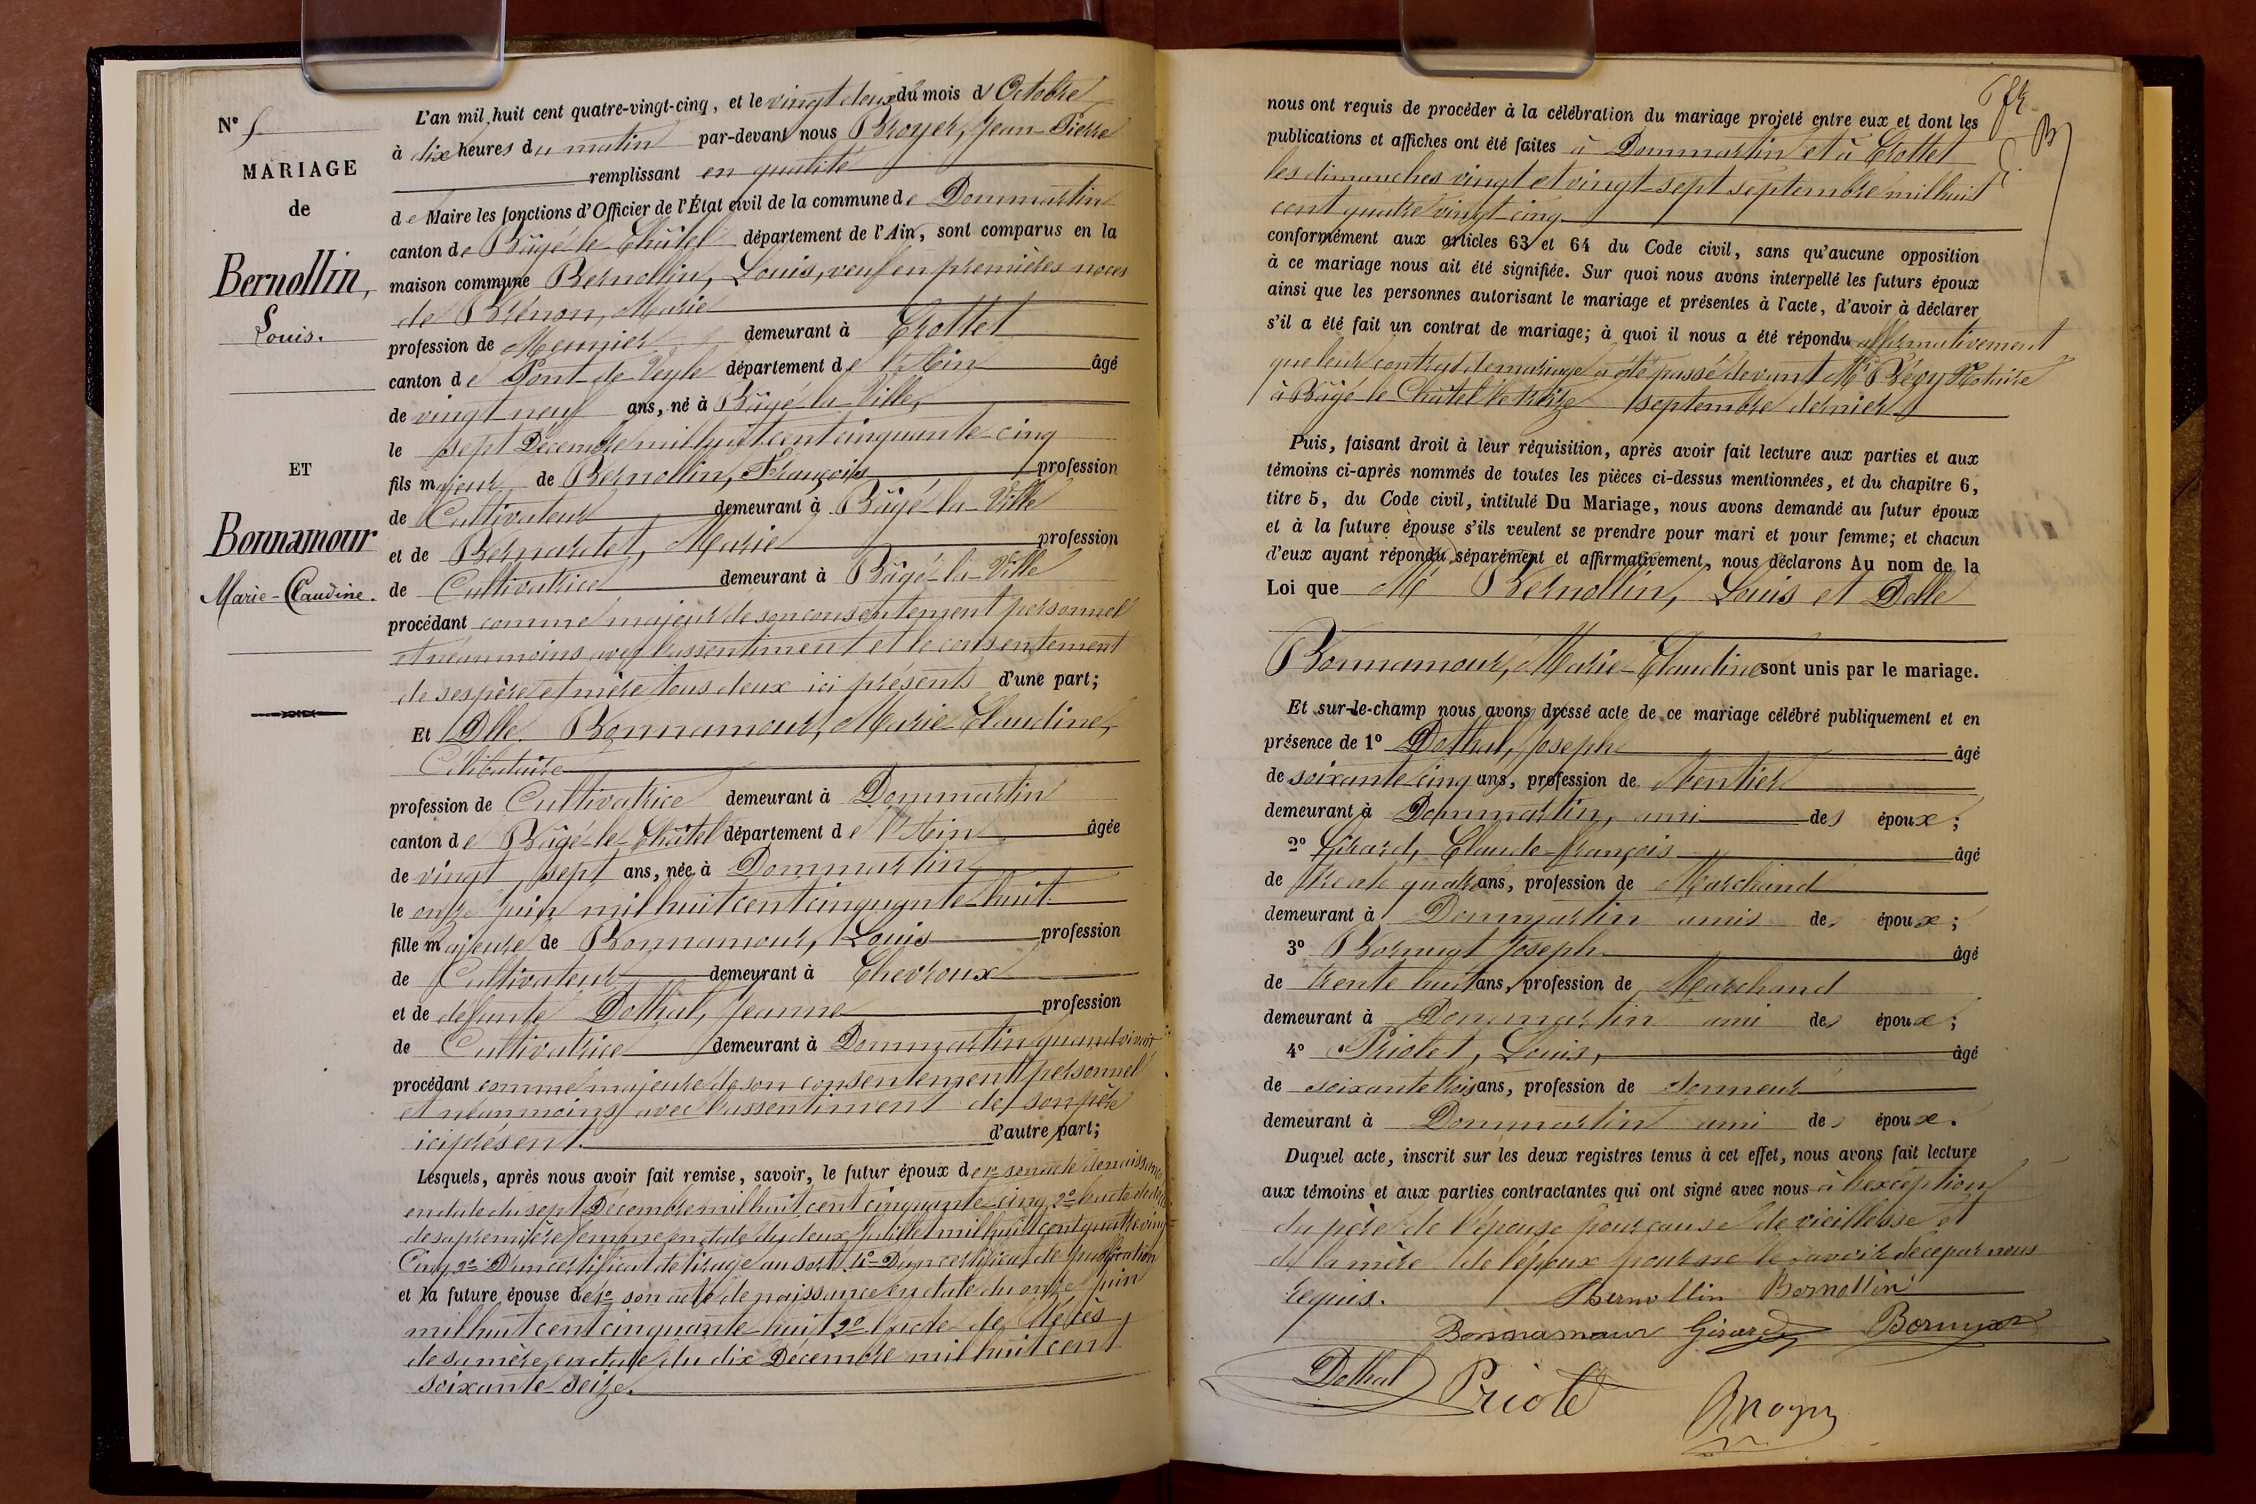 N° 5
MARIAGE
de
Bernollin,
Louis.
ET
Bonnamour
Marie-Claudine.
L'an mil huit cent quatre-vingt-cinq, et le vingt deux du mois d'Octobre
à dix heures du matin par-devant nous Broyer, Jean-Pierre
remplissant en qualité
de Maire les fonctions d'Officier de l'État civil de la commune de Dommartin
canton de Bâgé-le-Châtel département de l'Ain, sont comparus en la
maison commune Bernollin, Louis, veuf en premières noces
de Brénon, Marie
profession de Meunier demeurant à Crottet
canton de Pont-de-Veyle département de l'Ain âgé
de vingt neuf ans, né à Bâgé-la-Ville,
le sept Décembre mil huit cent cinquante-cinq
fils majeur de Bernollin, François profession
de Cultivateur demeurant à Bâgé-la-Ville
et de Bernardet, Marie profession
de Cultivatrice demeurant à Bâgé-la-Ville
procédant comme majeur de son consentement personnel
et néanmoins avec l'assentiment et le consentement
de ses père et mère tous deux ici présents d'une part;
Et Dlle Bonnamour, Marie-Claudine,
Célibataire
profession de Cultivatrice demeurant à Dommartin
canton de Bâgé-le-Châtel département de l'Ain âgée
de vingt sept ans, née à Dommartin
le onze juin mil huit cent cinquante-huit
fille majeure de Bonnamour, Louis profession
de Cultivateur demeurant à Chevroux
et de défunte Dothal, Jeanne profession
de Cultivatrice demeurant à Dommartin quand vivait
procédant comme majeure de son consentement personnel
et néanmoins avec l'assentiment de son père
ici présent. d'autre part;
Lesquels, après nous avoir fait remise, savoir, le futur époux de 1° son acte de naissance
en date du sept Décembre mil huit cent cinquante-cinq 2° l'acte de décès
de sa première femme en date du deux Juillet mil huit cent quatre vingt
Cinq 3° D'un certificat de tirage au sort 4° D'un certificat de publication
et la future épouse de 1° son acte de naissance en date du onze juin
mil huit cent cinquante-huit 2° l'acte de décès
de sa mère, en date du dix Décembre mil huit cent
soixante-seize.
nous ont requis de procéder à la célébration du mariage projeté entre eux et dont les
publications et affiches ont été faites à Dommartin et à Crottet
les dimanches vingt et vingt-sept septembre mil huit
cent quatre vingt cinq
conformément aux articles 63 et 64 du Code civil, sans qu'aucune opposition
à ce mariage nous ait été signifiée. Sur quoi nous avons interpellé les futurs époux
ainsi que les personnes autorisant le mariage et présentes à l'acte, d'avoir à déclarer
s'il a été fait un contrat de mariage; à quoi il nous a été répondu affirmativement
que leur contrat de mariage a été passé devant Me Notaire
à Bâgé-le-Châtel le treize septembre dernier
Puis, faisant droit à leur réquisition, après avoir fait lecture aux parties et aux
témoins ci-après nommés de toutes les pièces ci-dessus mentionnées, et du chapitre 6,
titre 5, du Code civil, intitulé Du Mariage, nous avons demandé au futur époux
et à la future épouse s'ils veulent se prendre pour mari et pour femme; et chacun
d'eux ayant répondu séparément et affirmativement, nous déclarons Au nom de la
Loi que Mr Bernollin, Louis et Delle
Bonnamour, Marie-Claudine sont unis par le mariage.
Et sur-le-champ nous avons dressé acte de ce mariage célébré publiquement et en
présence de 1° Dothal, Joseph âgé
de soixante cinq ans, profession de Rentier
demeurant à Dommartin, ami des époux;
2° Girard, Claude-françois âgé
de trente quatre ans, profession de Marchand
demeurant à Dommartin amis des époux;
3° Joseph âgé
de trente huit ans, profession de Marchand
demeurant à Dommartin ami des époux;
4° Priolet, Louis, âgé
de soixante trois ans, profession de sonneur
demeurant à Dommartin ami des époux.
Duquel acte, inscrit sur les deux registres tenus à cet effet, nous avons fait lecture
aux témoins et aux parties contractantes qui ont signé avec nous à l'exception
du père de l'épouse pour cause de vieillesse et
de la mère de l'époux pour ne le savoir de ce par nous
requis. Bernollin Bernollin
Bonnamour Girard
Dothal